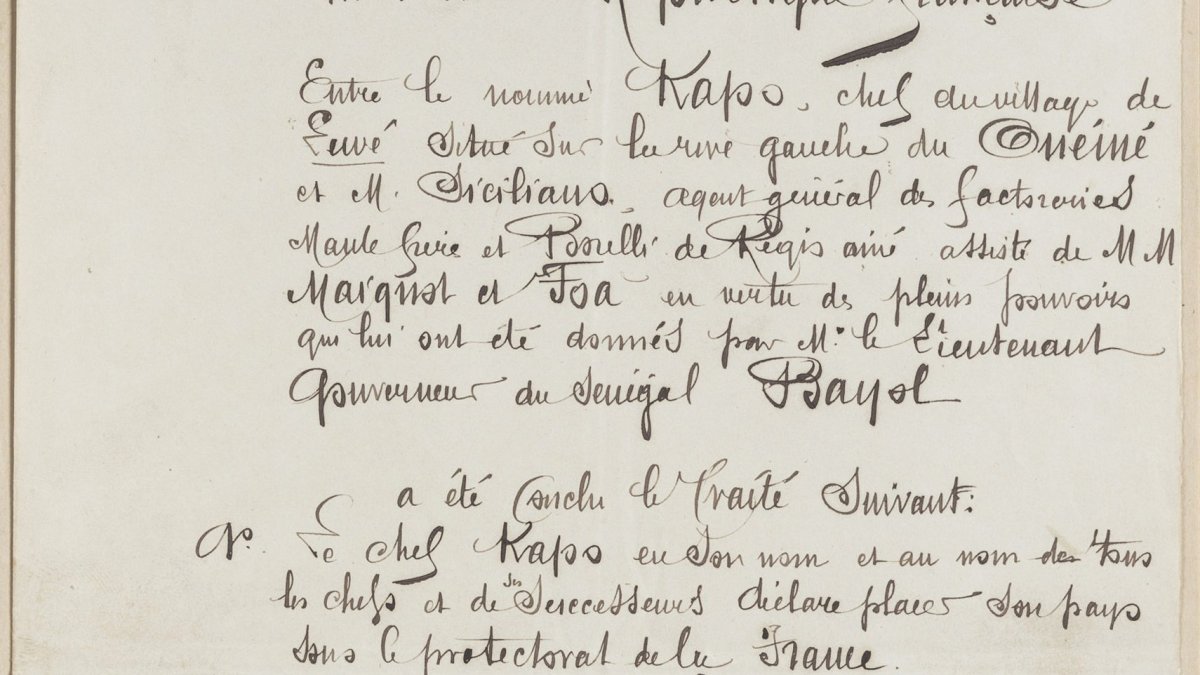 République Française
Entre le nommé Kapo, chef du village de
Euvé situé sur la rive gauche du Ouémé
et M. Siciliano, agent général des factoreries
Mante frère et Borelli de Régis ainé assisté de M M
Marquot et Foa en vertu des pleins pouvoirs
qui lui ont été donnés par M. le Lieutenant
Gouverneur du Sénégal Bayol
a été conclu le Traité Suivant:
Le chef Kapo en son nom et au nom de tous
les chefs et de ses Successeurs déclare placer son pays
sous le protectorat de la France.